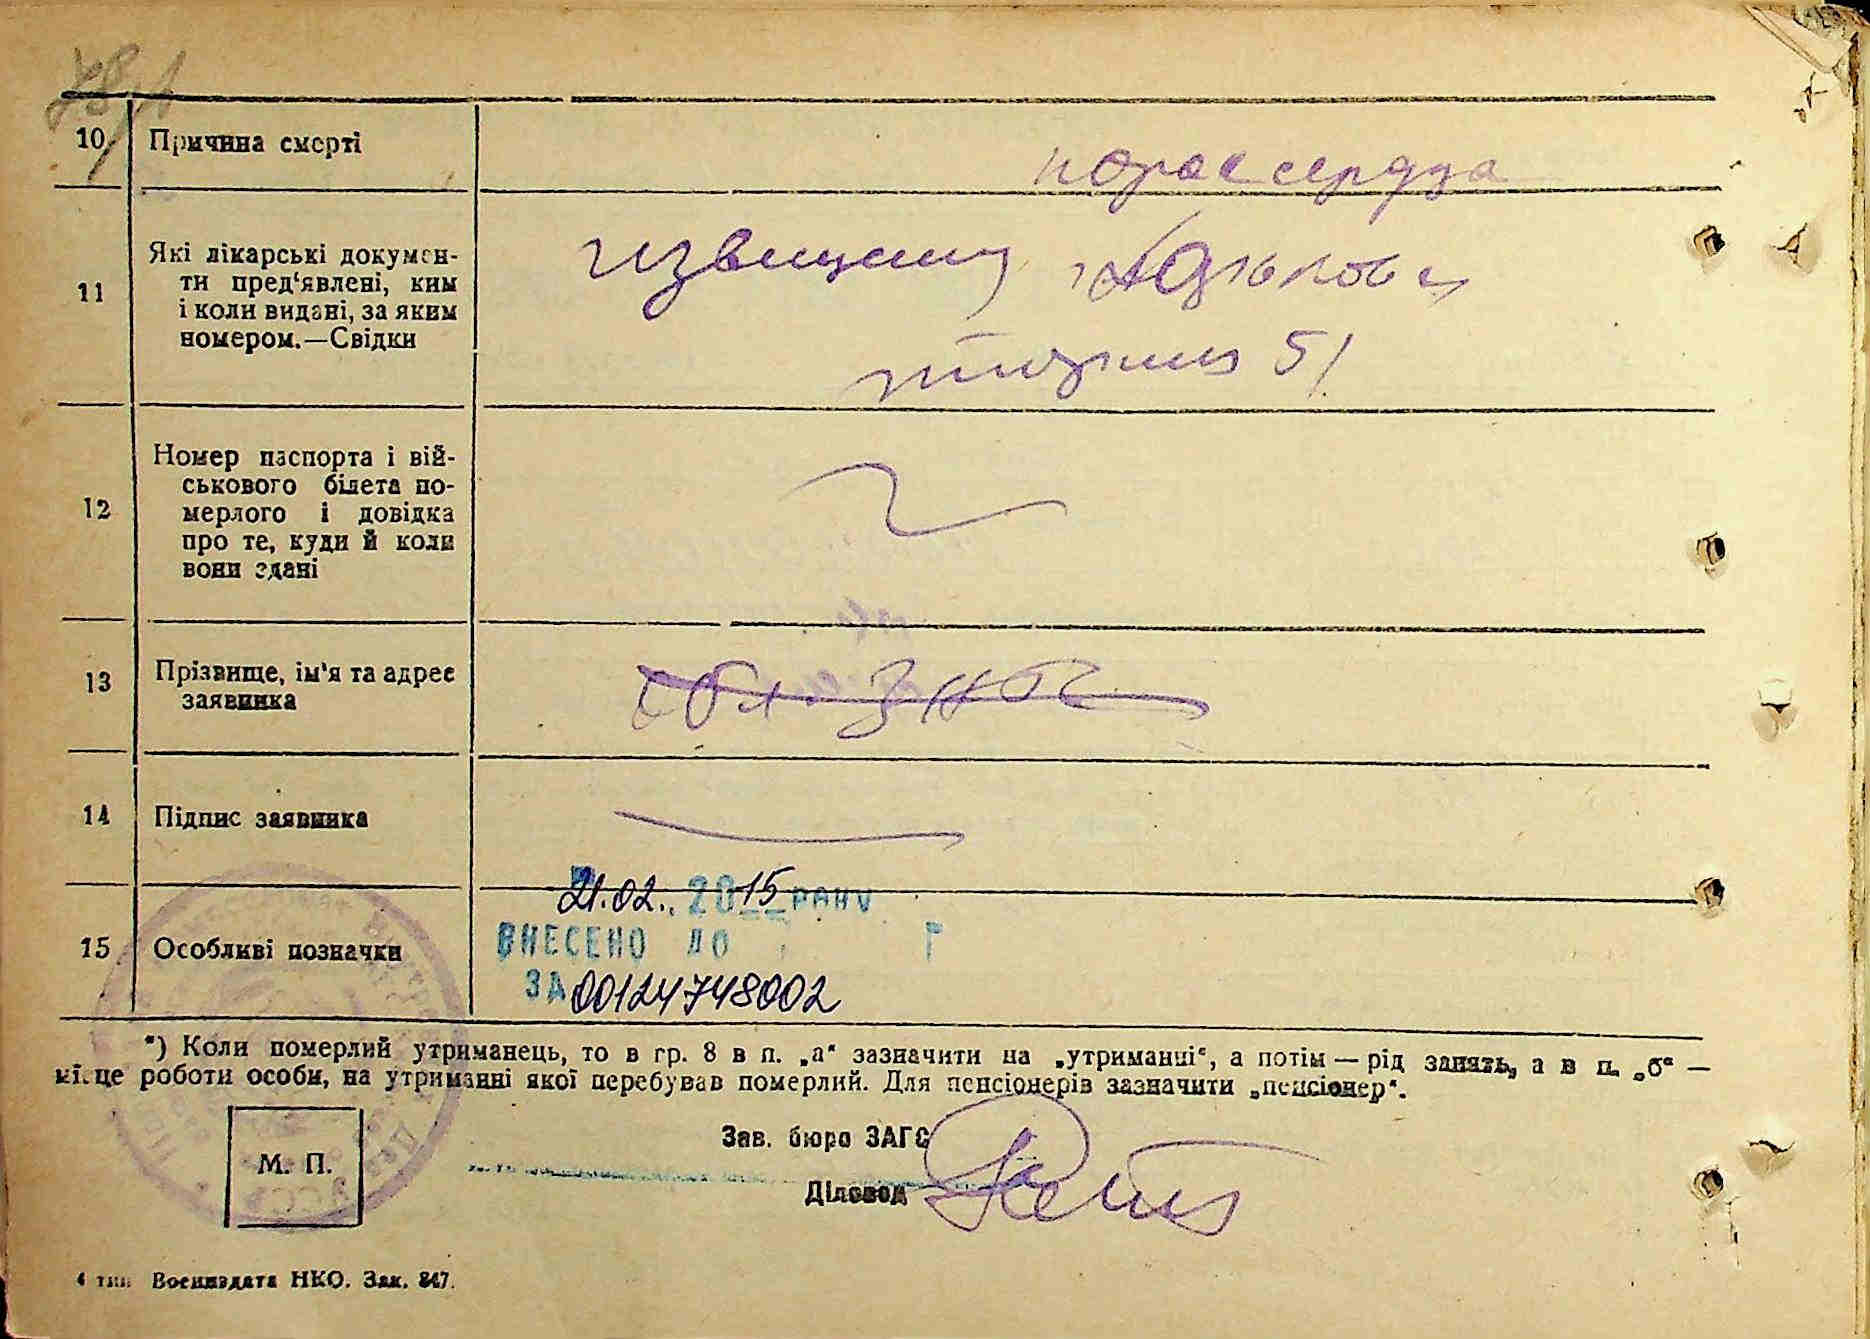 10
Причина смерті
порок сердца
11
Які лікарські докумен-
ти пред'явлені, ким
і коли видані, за яким
номером.—Свідки
извещения Харькова
тюрьма 51
12
Номер паспорта і вій-
ськового білета по-
мерлого і довідка
про те, куди й коли
вони здані
13
Прізвище, ім'я та адрес
заявника
14
Підпис заявника
21.02. 2015 року
15
Особливі позначки
ВНЕСЕНО ДО Г
ЗА 00124748002
*) Коли померлий утриманець, то в гр. 8 в п. „а“ зазначити на „утриманні“, а потім — рід занять, а в п. „б“ —
місце роботи особи, на утриманні якої перебував померлий. Для пенсіонерів зазначити „пенсіонер“.
Зав. бюро ЗАГС
М. П.
Діловод
4 тип. Воениздата НКО. Зак. 847.